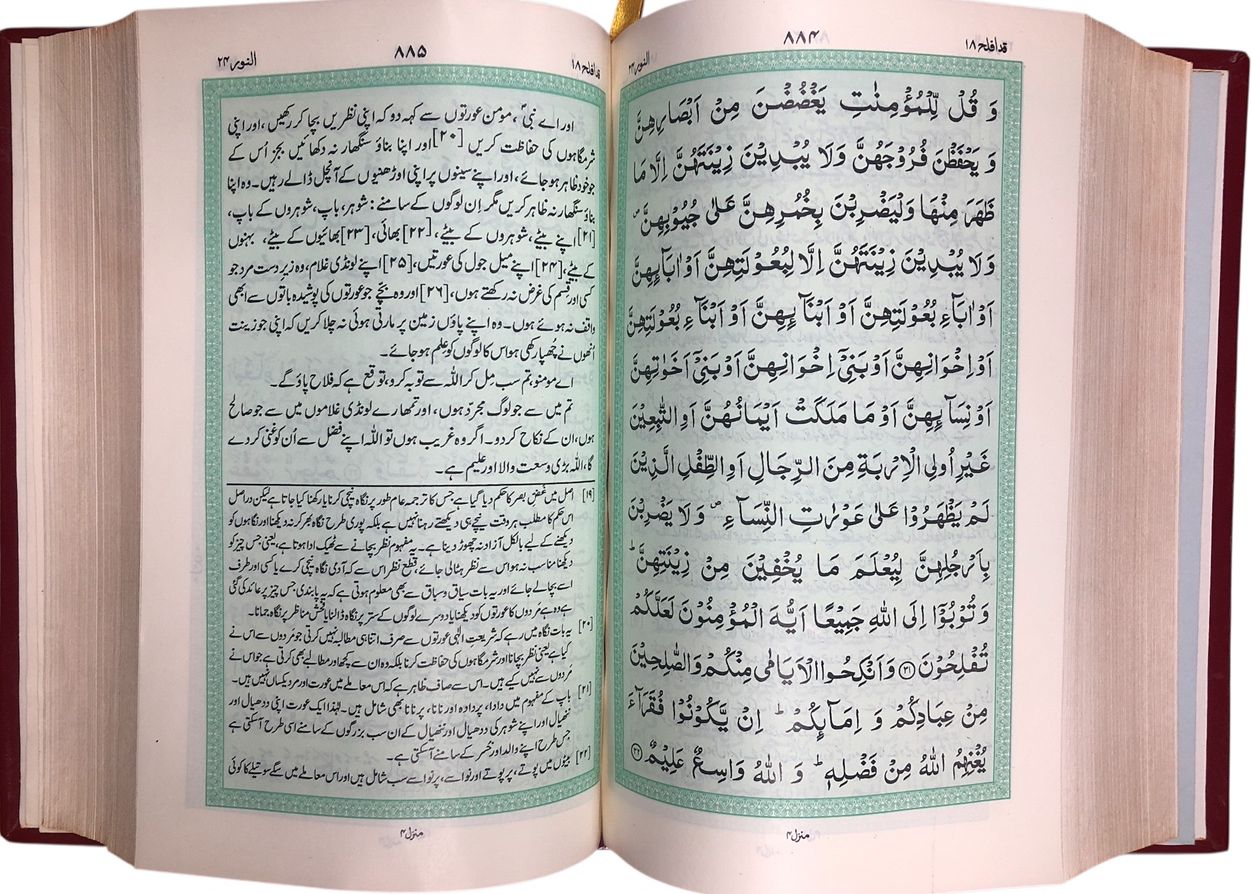 قدافلح ۱۸
۸۸۴
النور ۲۴
وَ قُلْ لِّلْمُؤْمِنٰتِ يَغْضُضْنَ مِنْ اَبْصَارِهِنَّ
وَ يَحْفَظْنَ فُرُوْجَهُنَّ وَلَا يُبْدِيْنَ زِيْنَتَهُنَّ اِلَّا مَا
ظَهَرَ مِنْهَا وَلْيَضْرِبْنَ بِخُمُرِهِنَّ عَلٰى جُيُوْبِهِنَّ ۪
وَلَا يُبْدِيْنَ زِيْنَتَهُنَّ اِلَّا لِبُعُوْلَتِهِنَّ اَوْ اٰبَآئِهِنَّ
اَوْ اٰبَآءِ بُعُوْلَتِهِنَّ اَوْ اَبْنَآئِهِنَّ اَوْ اَبْنَآءِ بُعُوْلَتِهِنَّ
اَوْ اِخْوَانِهِنَّ اَوْ بَنِيْٓ اِخْوَانِهِنَّ اَوْ بَنِيْٓ اَخَوٰتِهِنَّ
اَوْ نِسَآئِهِنَّ اَوْ مَا مَلَكَتْ اَيْمَانُهُنَّ اَوِ التّٰبِعِيْنَ
غَيْرِ اُولِي الْاِرْبَةِ مِنَ الرِّجَالِ اَوِ الطِّفْلِ الَّذِيْنَ
لَمْ يَظْهَرُوْا عَلٰى عَوْرٰتِ النِّسَآءِ ۪ وَلَا يَضْرِبْنَ
بِاَرْجُلِهِنَّ لِيُعْلَمَ مَا يُخْفِيْنَ مِنْ زِيْنَتِهِنَّ ؕ
وَ تُوْبُوْٓا اِلَى اللّٰهِ جَمِيْعًا اَيُّهَ الْمُؤْمِنُوْنَ لَعَلَّكُمْ
تُفْلِحُوْنَ ﴿۳۱﴾ وَاَنْكِحُوا الْاَيَامٰى مِنْكُمْ وَالصّٰلِحِيْنَ
مِنْ عِبَادِكُمْ وَ اِمَآئِكُمْ ؕ اِنْ يَّكُوْنُوْا فُقَرَآءَ
يُغْنِهِمُ اللّٰهُ مِنْ فَضْلِهٖ ؕ وَ اللّٰهُ وَاسِعٌ عَلِيْمٌ ﴿۳۲﴾
منزل ۴
قدافلح ۱۸
۸۸۵
النور ۲۴
اور اے نبیؐ، مومن عورتوں سے کہہ دو کہ اپنی نظریں بچا کر رکھیں، اور اپنی
شرمگاہوں کی حفاظت کریں [۲۰] اور اپنا بناؤ سنگھار نہ دکھائیں بجز اُس کے
جو خود ظاہر ہو جائے، اور اپنے سینوں پر اپنی اوڑھنیوں کے آنچل ڈالے رہیں۔ وہ اپنا
بناؤ سنگھار نہ ظاہر کریں مگر اِن لوگوں کے سامنے: شوہر، باپ، شوہروں کے باپ،
[۲۱] اپنے بیٹے، شوہروں کے بیٹے، [۲۲] بھائی، [۲۳] بھائیوں کے بیٹے، بہنوں
کے بیٹے، [۲۴] اپنے میل جول کی عورتیں، [۲۵] اپنے لونڈی غلام، وہ زیردست مرد جو
کسی اور قسم کی غرض نہ رکھتے ہوں، [۲۶] اور وہ بچے جو عورتوں کی پوشیدہ باتوں سے ابھی
واقف نہ ہوئے ہوں۔ وہ اپنے پاؤں زمین پر مارتی ہوئی نہ چلا کریں کہ اپنی جو زینت
انھوں نے چُھپا رکھی ہو اس کا لوگوں کو علم ہو جائے۔
اے مومنو، تم سب مل کر اللہ سے توبہ کرو، توقع ہے کہ فلاح پاؤ گے۔
تم میں سے جو لوگ مجرّد ہوں، اور تمھارے لونڈی غلاموں میں سے جو صالح
ہوں، ان کے نکاح کر دو۔ اگر وہ غریب ہوں تو اللہ اپنے فضل سے اُن کو غنی کر دے
گا، اللہ بڑی وسعت والا اور علیم ہے۔
[۱۹] اصل میں غضِ بصر کا حکم دیا گیا ہے جس کا ترجمہ عام طور پر نگاہ نیچی کرنا یا رکھنا کیا جاتا ہے لیکن دراصل
اس حکم کا مطلب ہر وقت نیچے ہی دیکھتے رہنا نہیں ہے بلکہ پوری طرح نگاہ بھر کر نہ دیکھنا اور نگاہوں کو
دیکھنے کے لیے بالکل آزاد نہ چھوڑ دینا ہے۔ یہ مفہوم نظر بچانے سے ٹھیک ادا ہوتا ہے، یعنی جس چیز کو
دیکھنا مناسب نہ ہو اس سے نظر ہٹا لی جائے، قطع نظر اس سے کہ آدمی نگاہ نیچی کرے یا کسی اور طرف
اسے بچا لے جائے اور یہ بات سیاق و سباق سے بھی معلوم ہوتی ہے کہ یہ پابندی جس چیز پر عائد کی گئی
ہے وہ ہے مردوں کا عورتوں کو دیکھنا یا دوسرے لوگوں کے ستر پر نگاہ ڈالنا یا فحش مناظر پر نگاہ جمانا۔
[۲۰] یہ بات نگاہ میں رہے کہ شریعتِ الٰہی عورتوں سے صرف اتنا ہی مطالبہ نہیں کرتی جو مردوں سے اس نے
کیا ہے یعنی نظر بچانا اور شرمگاہوں کی حفاظت کرنا بلکہ وہ ان سے کچھ اور مطالبے بھی کرتی ہے جو اس نے
مردوں سے نہیں کیے ہیں۔ اس سے صاف ظاہر ہے کہ اس معاملے میں عورت اور مرد یکساں نہیں ہیں۔
[۲۱] باپ کے مفہوم میں دادا، پردادا اور نانا، پرنانا بھی شامل ہیں۔ لہٰذا ایک عورت اپنی ددھیال اور
ننھیال اور اپنے شوہر کی ددھیال اور ننھیال کے ان سب بزرگوں کے سامنے اسی طرح آ سکتی ہے
جس طرح اپنے والد اور خُسر کے سامنے آ سکتی ہے۔
[۲۲] بیٹوں میں پوتے، پرپوتے اور نواسے، پرنواسے سب شامل ہیں اور اس معاملے میں سگے سوتیلے کا کوئی
منزل ۴